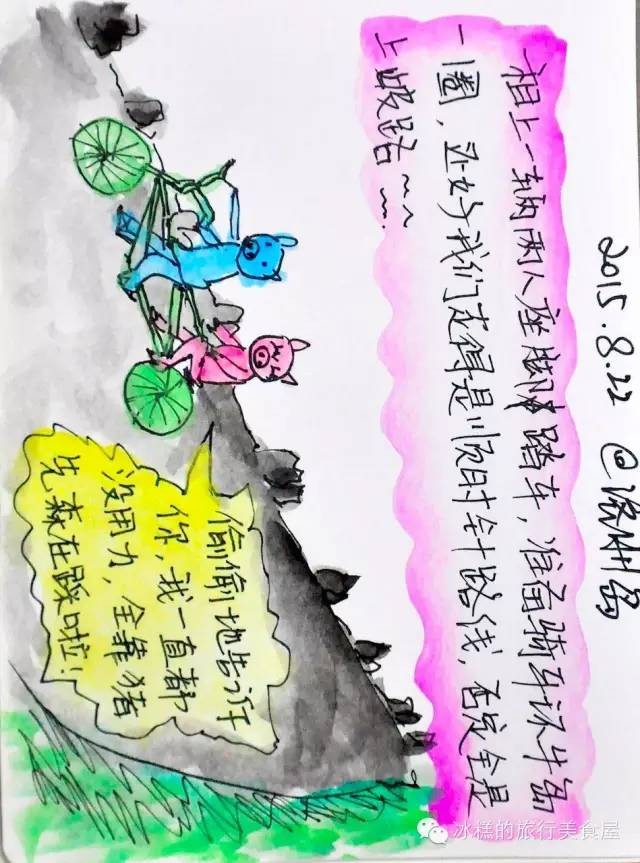 2015.8.22 @济州岛
租上一辆两人座脚踏车，准备骑车环牛岛
一圈，还好我们走得是顺时针路线，否定全是
上坡路~~
偷偷地告诉
你，我一直都
没用力，全靠猪
先森在踩啦！
冰糕的旅行美食屋